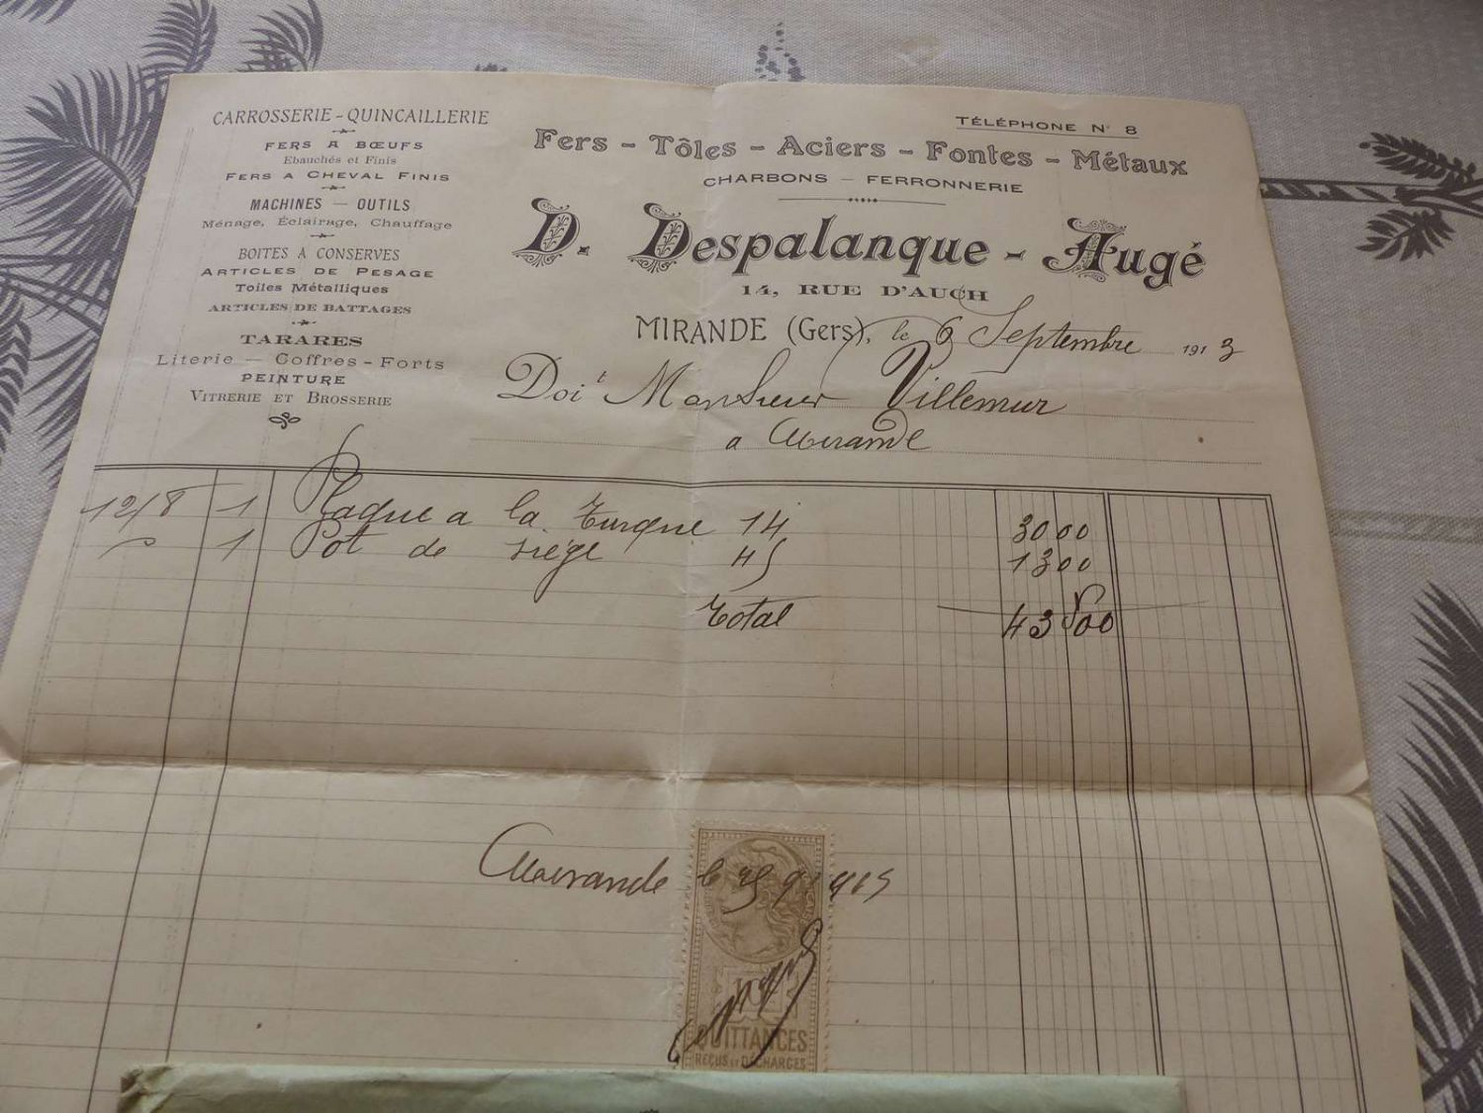 CARROSSERIE - QUINCAILLERIE
FERS A BŒUFS
Ebauchés et Finis
FERS A CHEVAL FINIS
MACHINES — OUTILS
Ménage, Éclairage, Chauffage
BOITES A CONSERVES
ARTICLES DE PESAGE
Toiles Métalliques
ARTICLES DE BATTAGES
TARARES
Literie — Coffres-Forts
PEINTURE
VITRERIE ET BROSSERIE
TÉLÉPHONE N° 8
Fers - Tôles - Aciers - Fontes - Métaux
CHARBONS — FERRONNERIE
D. Despalanque - Augé
14, RUE D'AUCH
MIRANDE (Gers), le 6 Septembre 1913
Doit Monsieur Villemur
a Mirande
12/8 1 Plaque a la turque 14 30 00
1 Pot de siège 45 13 00
Total 43 00
Mirande le
QUITTANCES
REÇUS ET DÉCHARGES